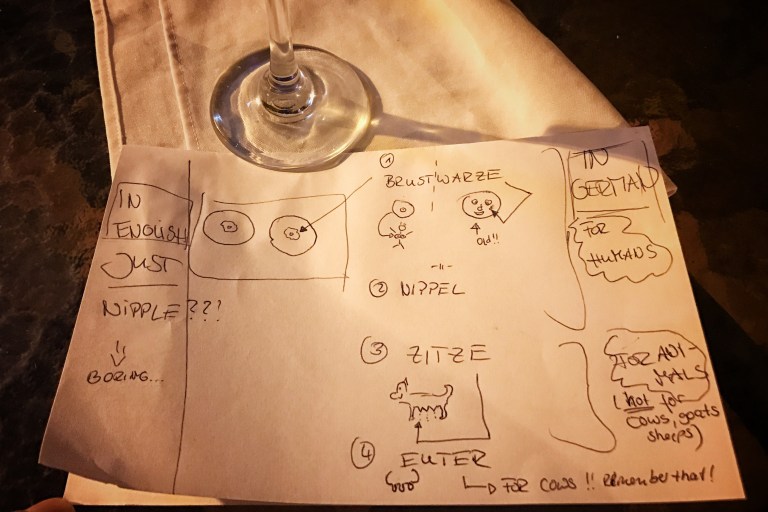 IN
ENGLISH
JUST
NIPPLE???
BORING...
①
BRUST'WARZE
old!!
-"-
② NIPPEL
③ ZITZE
④ EUTER
FOR COWS !! REMEMBER that!
IN
GERMAN
FOR
HUMANS
FOR ANI-
MALS
(not for
cows, goats
sheeps)